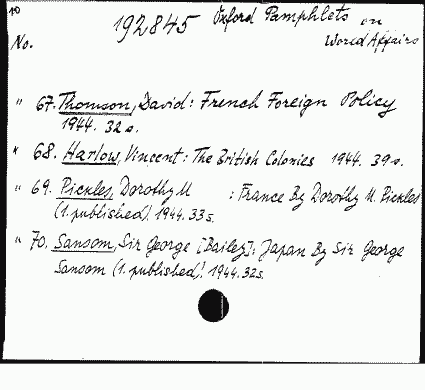 10
192845 Oxford Pamphlets on
No. World Affairs
" 67. Thomson, David: French Foreign Policy
1944. 32 s.
" 68. Harlow, Vincent: The British Colonies 1944. 39 s.
" 69. Pickles, Dorothy M : France By Dorothy M. Pickles
(1. published). 1944. 33 s.
" 70. Sansom, Sir George [Bailey]: Japan By Sir George
Sansom (1. published). 1944. 32 s.